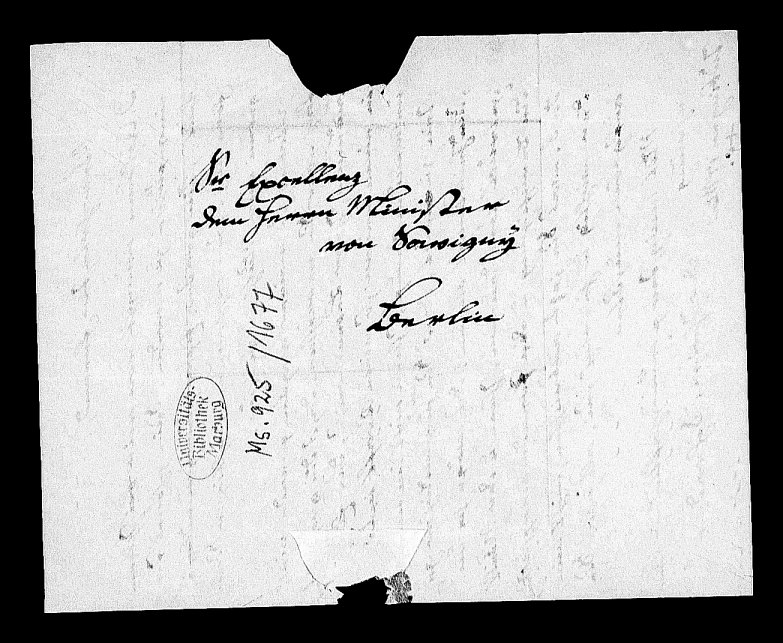 Sr Excellenz
dem Herrn Minister
von Savigny
Berlin
Ms. 925/1677
Universitäts-
Bibliothek
Marburg